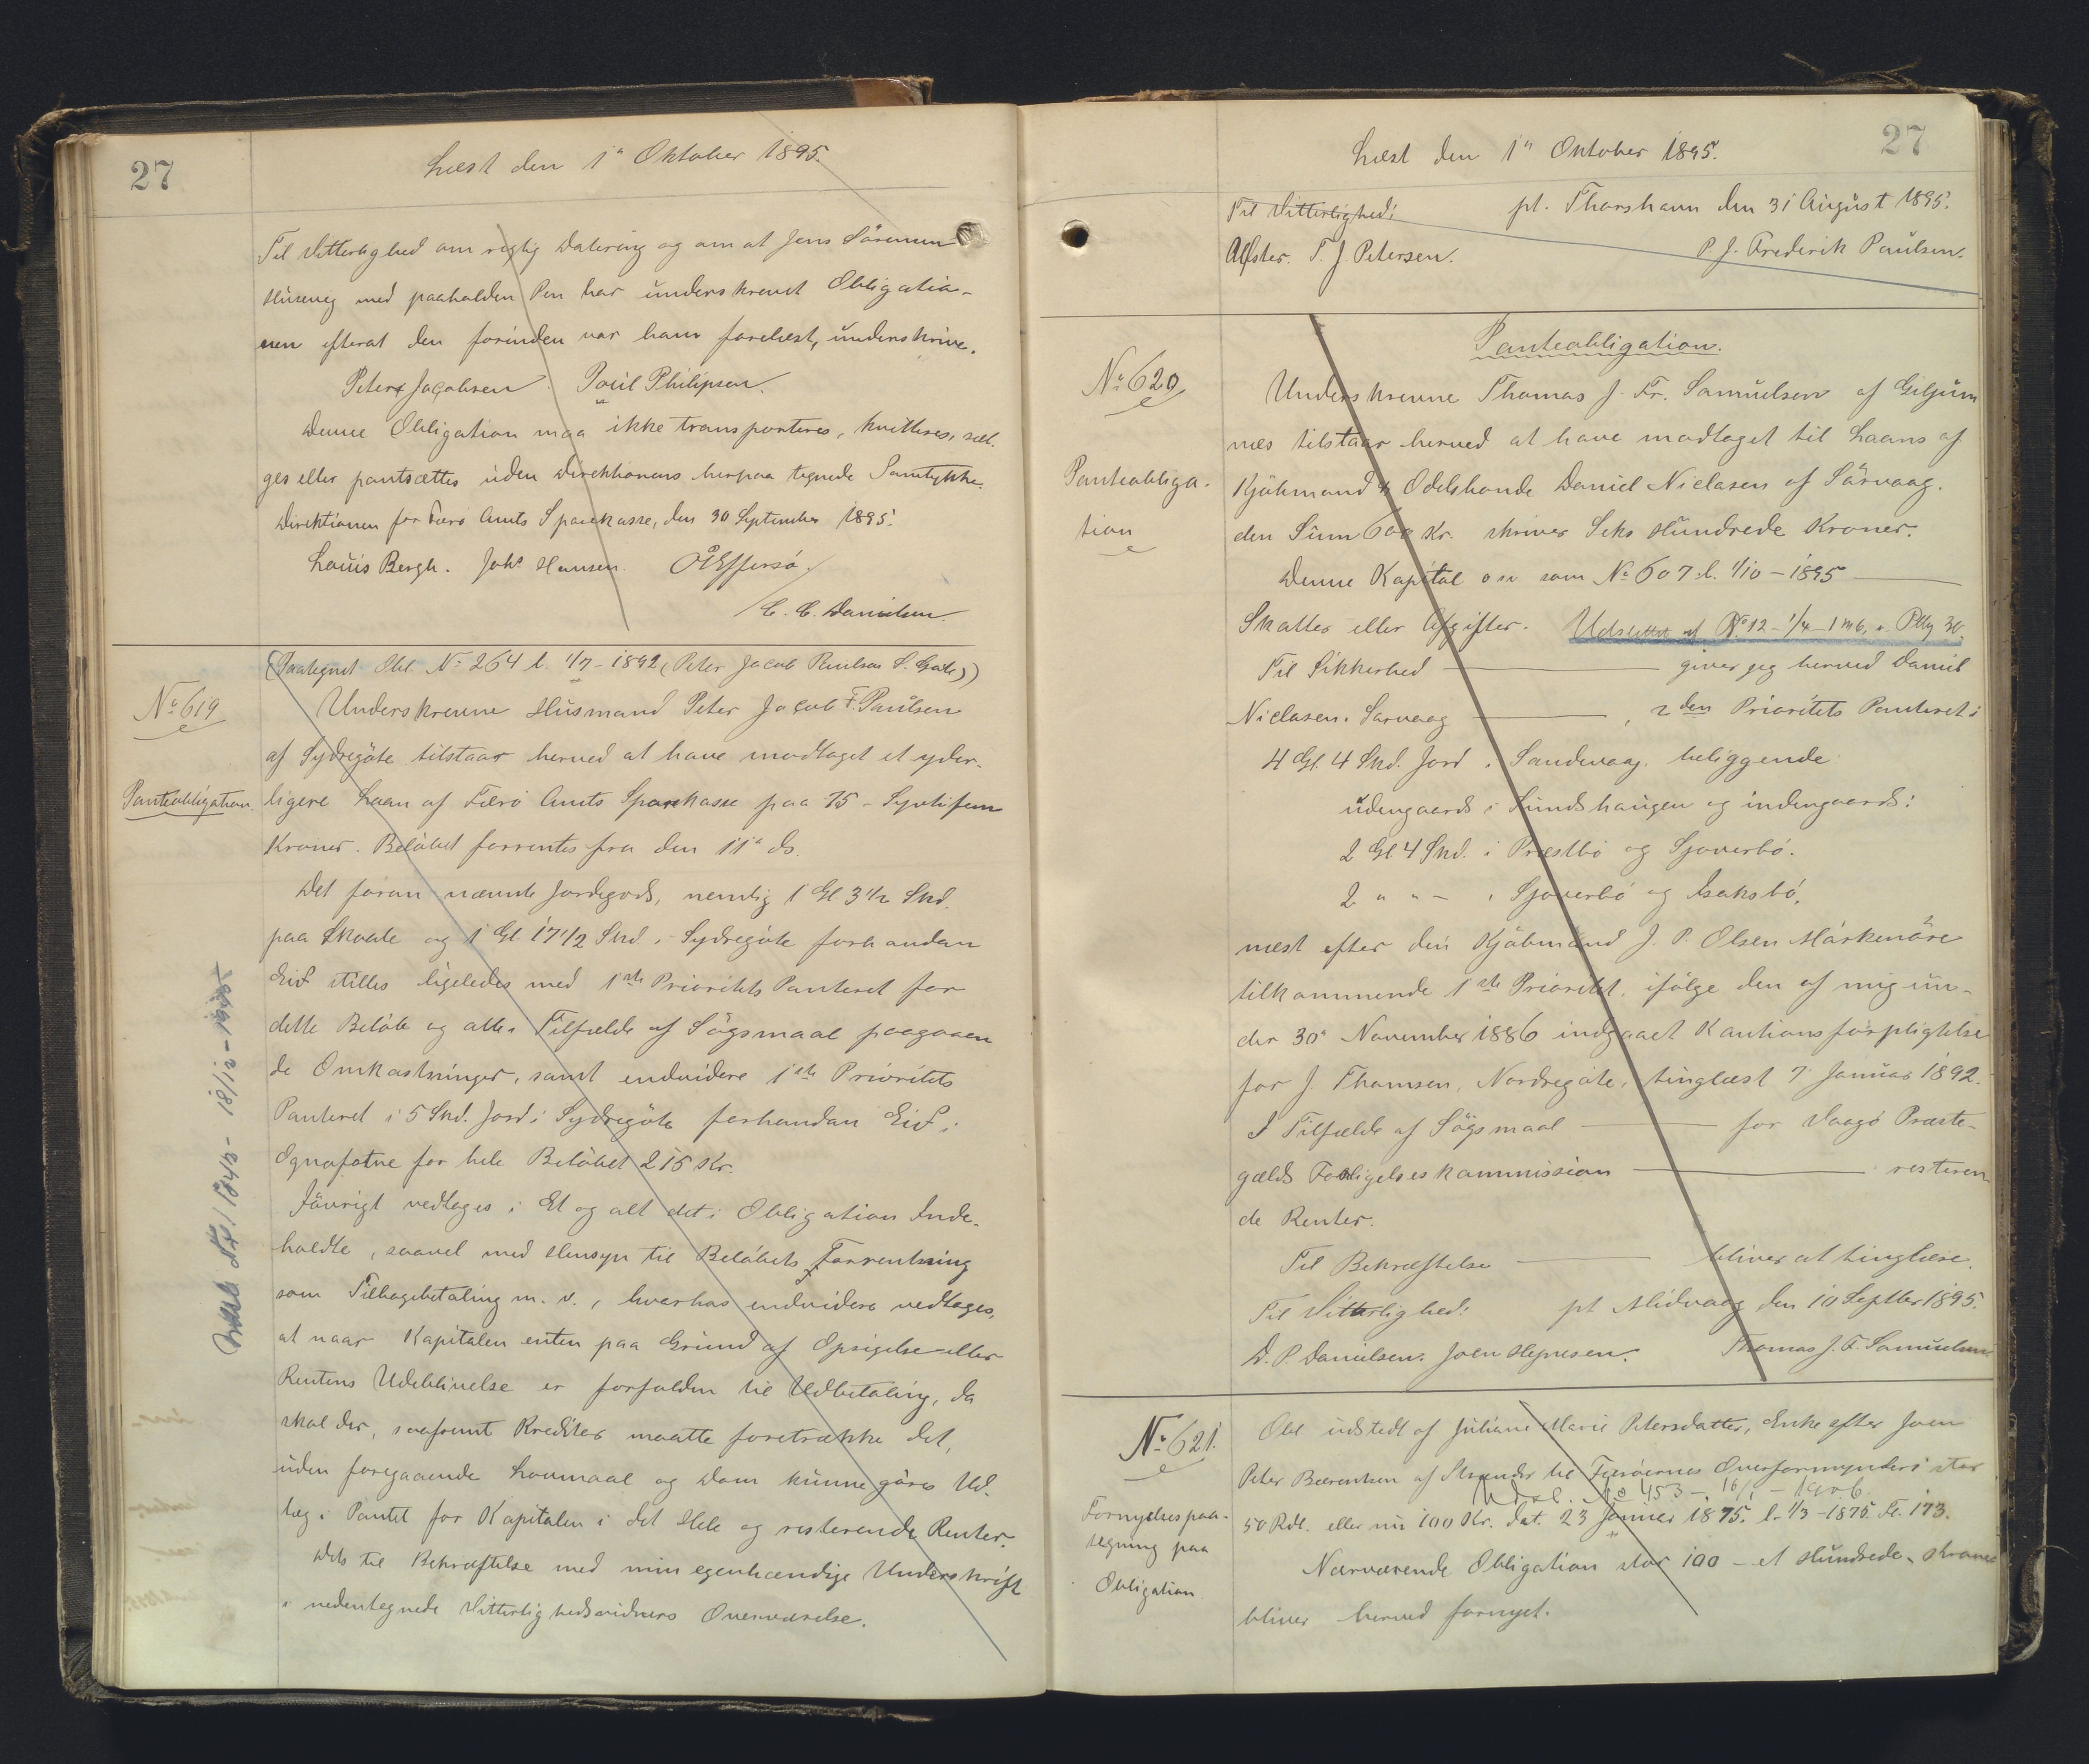 27
Læst den 1ª Oktober 1895.
Til Vitterlighed om rigtig Datering og om at Jens Sörensen
Husevig med paaholden Pen har underskrevet Obligatio-
nen efterat den forinden var ham forelæst, underskrive.
Peter Jacobsen. Poul Philipsen.
Denne Obligation maa ikke transporteres, kvitteres, sæl-
ges eller pantsættes uden Direktionens herpaa tegnede Samtykke.
Direktionen for Færö Amts Sparekasse, den 30 September 1895.
Louis Bergh. Johs Hansen. OEffersö.
C. C. Danielsen.
(Paategnet Obl. No 264 l. 1/7-1892 (Peter Jacob Paulsen S. Gøte))
No 619
Panteobligation
Underskrevne Husmand Peter Jacob F. Paulsen
af Sydregöte tilstaar herved at have modtaget et yder-
ligere Laan af Færö Amts Sparekasse paa 75 - Syvtifem
Kroner. Belöbet forrentes fra den 11ª ds.
Det foran nævnte Jordegods, nemlig 1 Gl. 3 1/2 Skd.
paa Skaale og 1 Gl. 17 1/2 Skd. i Sydregöte forhandan
Eid stilles ligeledes med 1ste Prioritets Panteret for
dette Belöb og alle i Tilfælde af Sögsmaal paagaaen
de Omkostninger, samt endvidere 1ste Prioritets
Panteret i 5 Skd. Jord i Sydregöte forhandan Eid i
Ognafotne for hele Belöbet 215 Kr.
Iövrigt vedtages i Et og alt det i Obligation Inde-
holdte, saavel med Hensyn til Belöbets Forrentning
som Tilbagebetaling m. v., hvorhos endvidere vedtages,
at naar Kapitalen enten paa Grund af Opsigelse eller
Rentens Udeblivelse er forfalden til Udbetaling, da
skal der, saafremt Kreditor maatte foretrække det,
uden foregaaende Lovmaal og Dom kunne göres Ud-
læg i Pantet for Kapitalen i det Hele og resterende Renter.
Dets til Bekræftelse med min egenhændige Underskrift
i nedentegnede Vitterlighedsvidners Overværelse.
27
Læst den 1ª Oktober 1895.
Til Vitterlighed: pt. Thorshavn den 31 August 1895.
T. J. Petersen. P. J. Frederik Paulsen.
Panteobligation.
No 620
Panteobliga-
tion
Underskrevne Thomas J. Fr. Samuelsen af Giljum
næs tilstaar herved at have modtaget til Laans af
Kjöbmand & Odelsbonde Daniel Niclasen af Sörvaag.
den Sum 600 Kr. skriver Seks Hundrede Kroner.
Denne Kapital osv som No 607 l. 1/10 - 1895
Skatter eller Afgifter. Udslettet
Til Sikkerhed giver jeg herved Daniel
Niclasen, Sörvaag, 2den Prioritets Panteret i
4 Gl. 4 Skd. Jord i Sandevaag, beliggende
udengaards i Lundshaugen og indengaards:
2 Gl 4 Skd. i Præstbö og Sjoverbö.
2 " " - i Sjoverbö og Isaksbö,
næst efter den Kjöbmand J. P. Olsen Mörkenöre
tilkommende 1ste Prioritet, ifölge den af mig un-
der 30ª November 1886 indgaaet Kautionsforpligtelse
for J. Thomsen, Nordregöte, tinglæst 7 Januar 1892.
I Tilfælde af Sögsmaal for Vaagö Præste-
gælds Forligelseskommission resteren
de Renter.
Til Bekræftelse bliver at tinglæse.
Til Vitterlighed: pt Midvaag den 10 Septber 1895.
D. P. Danielsen. Joen Hejnesen. Thomas J. F. Samuelsen
No 621.
Fornyelsespaa-
tegning paa
Obligation
Obl udstedt af Juliane Marie Petersdatter, Enke efter Joen
Peter Bærentsen af Strender til Færöernes Overformynderi stor
Udsl. No 453 - 16/1 - 1906
50 Rdl. eller nu 100 Kr. dat. 23 Januar 1875. l. 1/3 - 1875. Fr. 173.
Nærværende Obligation stor 100 - et Hundrede - Kroner
bliver herved fornyet.